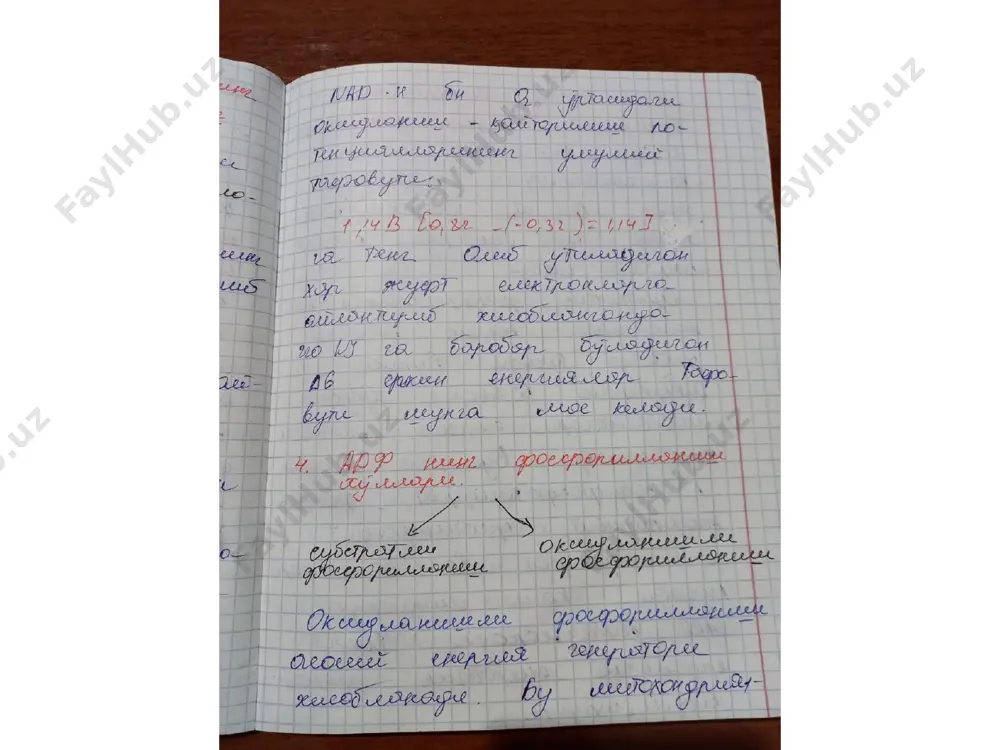 NAD-H бн O₂ ўртасидаги
оксидланиш - қайтарилиш по-
тенциялларининг умумий
тафовути:
1,14В [0,82 -(-0,32)=1,14]
га тенг Олиб утиладиган
хар жуфт електронларга
айлантириб хисобланганда
220 кJ га баробар бўладиган
ΔG еркин енергиялар Тафо-
вути шунга мос келади.
4. АДФ нинг фосфориллониш
йўллари.
субстратли
фосфориллониш
оксидланишли
фосфориллониш
Оксидланишли фосфориллониш
асосий енергия генератори
хисобланади. Бу митохондрия-
FaylHub.uz
FaylHub.uz
FaylHub.uz
FaylHub.uz
FaylHub.uz